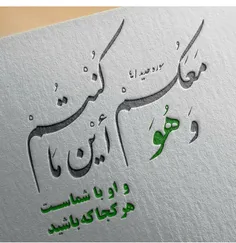 سوره حدید ۴۱
وَ هُوَ مَعَکُم أَینَ مَا کُنتُم
و او با شماست
هر کجا که باشید